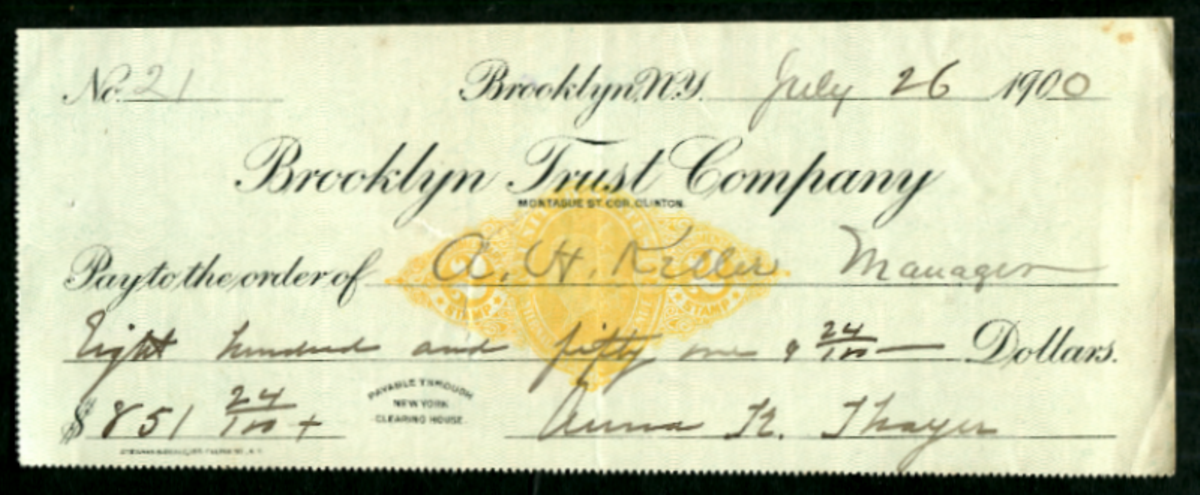 No. 21 Brooklyn, N.Y. July 26 1900
Brooklyn Trust Company
MONTAGUE ST. COR. CLINTON.
Pay to the order of A. H. Keller Manager
STAMP STAMP
Eight hundred and fifty one & 24/100 — Dollars.
$ 851 24/100 +
PAYABLE THROUGH
NEW YORK
CLEARING HOUSE.
Anna K. Thayer